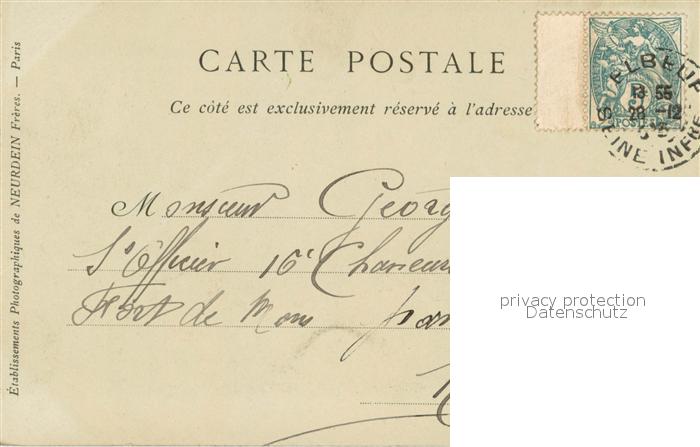 CARTE POSTALE
Ce côté est exclusivement réservé à l'adresse
ELBEUF
13 55
28 -12
SEINE INFRE
POSTES
Monsieur Georg
S/Officier 16e Chasseurs
Fort de
Établissements Photographiques de NEURDEIN Frères. — Paris
privacy protection
Datenschutz